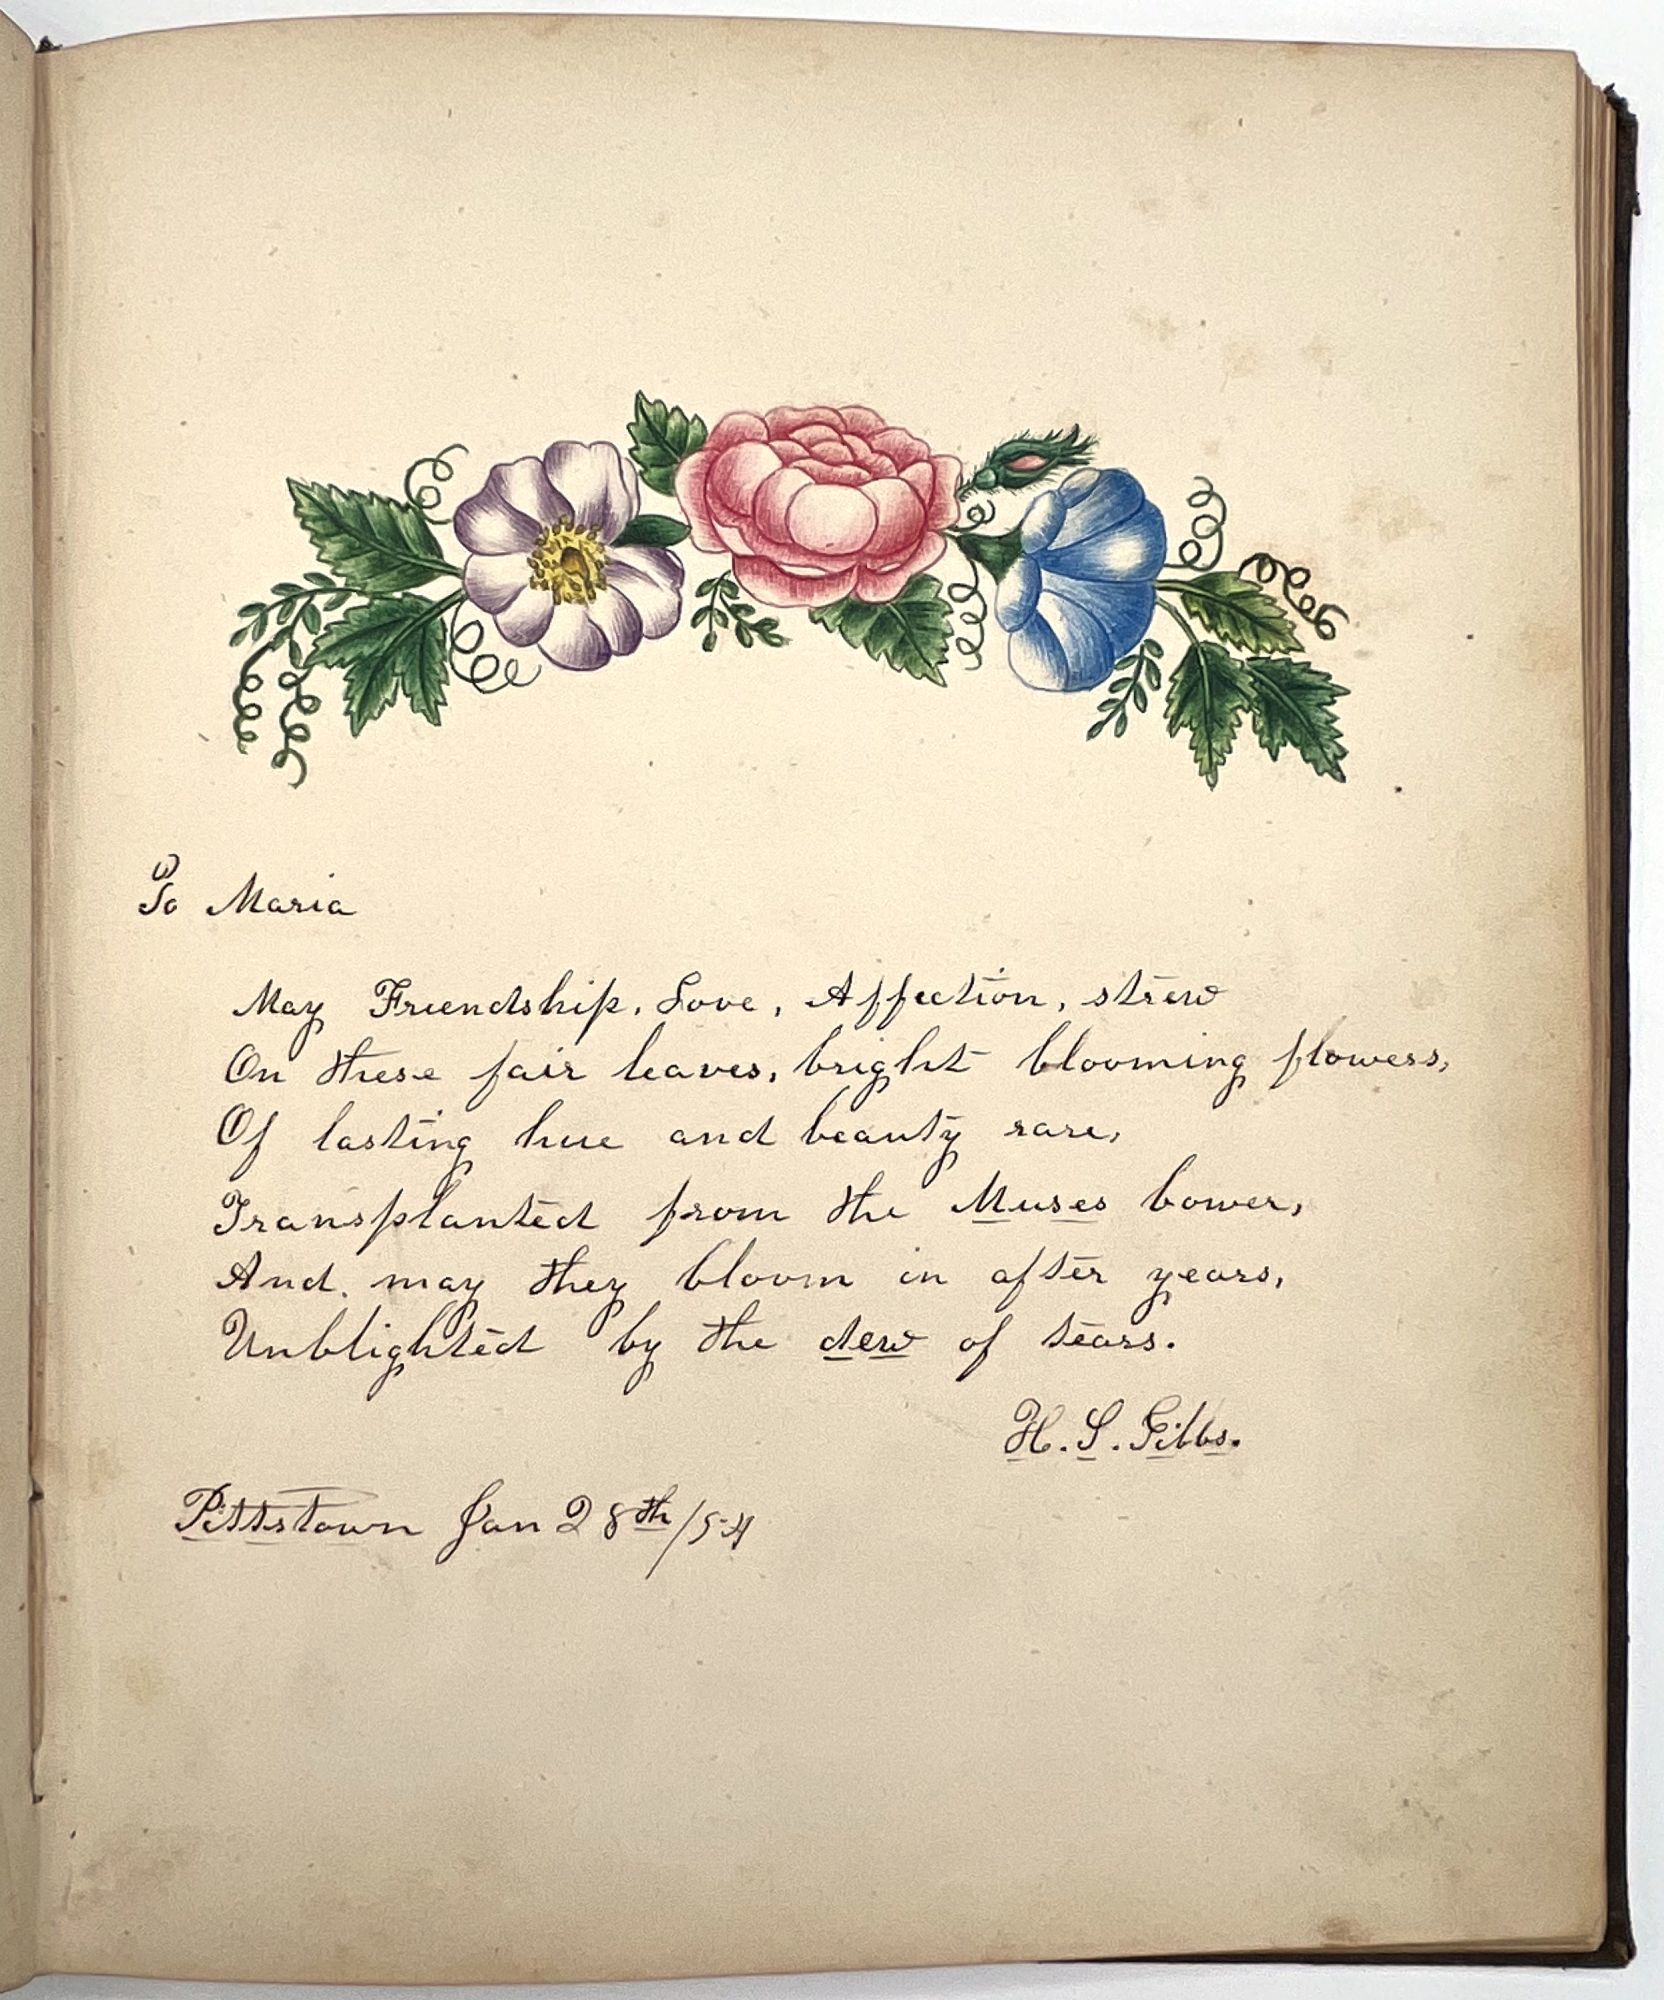 To Maria
May Friendship, Love, Affection, strew
On these fair leaves, bright blooming flowers,
Of lasting hue and beauty rare,
Transplanted from the Muses bower,
And. may they bloom in after years,
Unblighted by the dew of tears.
H. S. Gibbs.
Pittstown Jan 28th/54